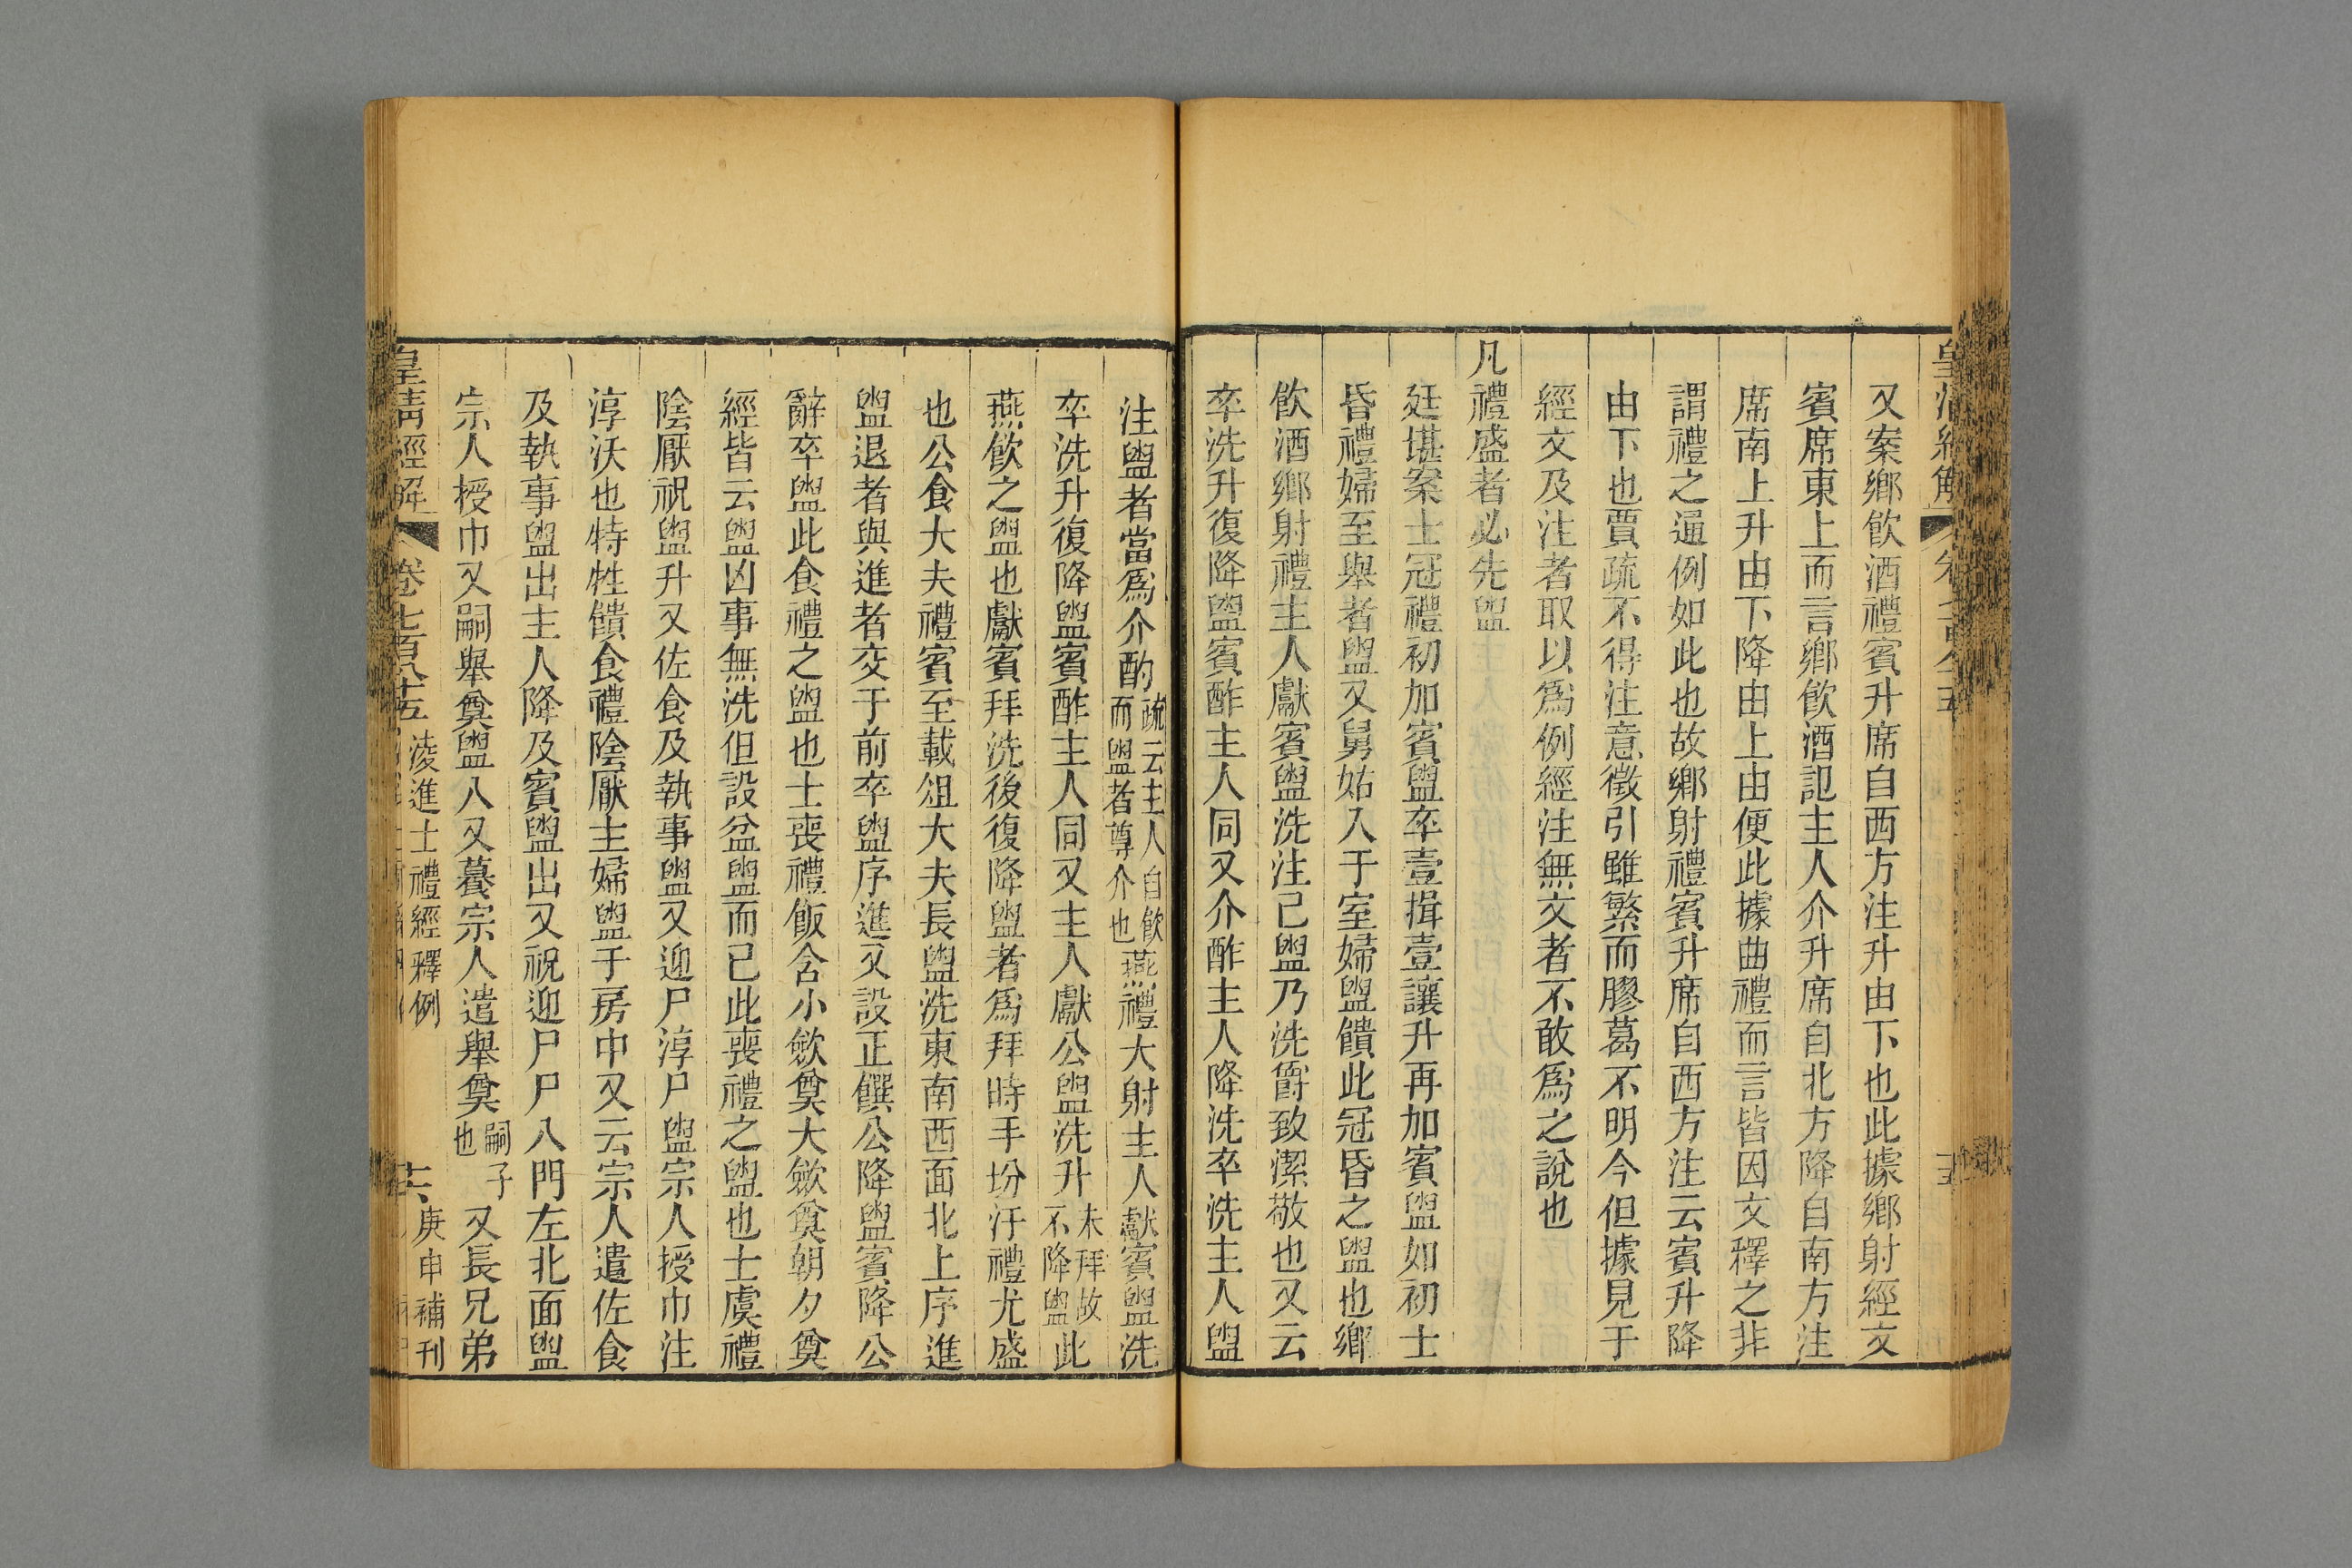 又案鄉飲酒禮賓升席自西方注升由下也此據鄉射經文
賓席東上而言鄉飲酒記主人介升席自北方降自南方注
席南上升由下降由上由便此據曲禮而言皆因文釋之非
謂禮之通例如此也故鄉射禮賓升席自西方注云賓升降
由下也賈疏不得注意徵引雖繁而膠葛不明今但據見于
經文及注者取以爲例經注無文者不敢爲之說也
凡禮盛者必先盥
廷堪案士冠禮初加賓盥卒壹揖壹讓升再加賓盥如初士
昏禮婦至舉者盥又舅姑入于室婦盥饋此冠昏之盥也鄉
飲酒鄉射禮主人獻賓盥洗注已盥乃洗爵致潔敬也又云
卒洗升復降盥賓酢主人同又介酢主人降洗卒洗主人盥
注盥者當爲介酌疏云主人自飲而盥者尊介也燕禮大射主人獻賓盥洗
卒洗升復降盥賓酢主人同又主人獻公盥洗升未拜故不降盥此
燕飲之盥也獻賓拜洗後復降盥者爲拜時手坋汙禮尤盛
也公食大夫禮賓至載俎大夫長盥洗東南西面北上序進
盥退者與進者交于前卒盥序進又設正饌公降盥賓降公
辭卒盥此食禮之盥也士喪禮飯含小斂奠大斂奠朝夕奠
經皆云盥凶事無洗但設盆盥而已此喪禮之盥也士虞禮
陰厭祝盥升又佐食及執事盥又迎尸淳尸盥宗人授巾注
淳沃也特牲饋食禮陰厭主婦盥于房中又云宗人遣佐食
及執事盥出主人降及賓盥出又祝迎尸尸入門左北面盥
宗人授巾又嗣舉奠盥入又養宗人遣舉奠嗣子也又長兄弟
皇淸經解 卷七百八十五 淩進士禮經釋例 十六 庚申補刊